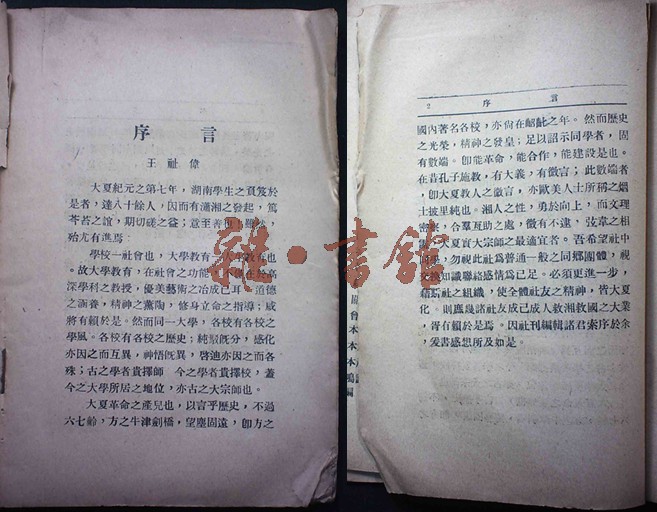 序言
王祉偉
大夏紀元之第七年，湖南學生之負笈於
是者，達八十餘人，因而有瀟湘之發起，篤
苔苔之誼，期切磋之益；意至善也
殆尤有進焉：
學校一社會也，大學教育
故大學教育，在社會之功能
深學科之教授，優美藝術之冶成已耳
之涵養，精神之薰陶，修身立命之指導；咸
將有賴於是。然而同一大學，各校有各校之
學風。各校有各校之歷史；純駁旣分，感化
亦因之而互異，神悟旣異，啓迪亦因之而各
殊；古之學者貴擇師　今之學者貴擇校，蓋
今之大學所居之地位，亦古之大宗師也。
大夏革命之產兒也，以言乎歷史，不過
六七齡，方之牛津劍橋，望塵固遠，卽方之
2　序言
國內著名各校，亦尙在齠齔之年。然而歷史
之光榮，精神之發皇；足以詔示同學者，固
有數端。卽能革命，能合作，能建設是也。
在昔孔子施教，有大義，有微言；此數端者
，卽大夏敎人之微言，亦歐美人士所稱之煙
士披里純也。湘人之性，勇於向上，而文理
合羣互助之處，微有不逮，弦韋之相
大夏實大宗師之最適宜者。吾希望社中
勿視此社爲普通一般之同鄉團體，視
交換知識聯絡感情爲已足。必須更進一步，
社之組織，使全體社友之精神，皆大夏
化。則庶幾諸社友成已成人救湘救國之大業
，胥有賴於是焉。因社刊編輯諸君索序於余
，爰書感想所及如是。
雜·書館